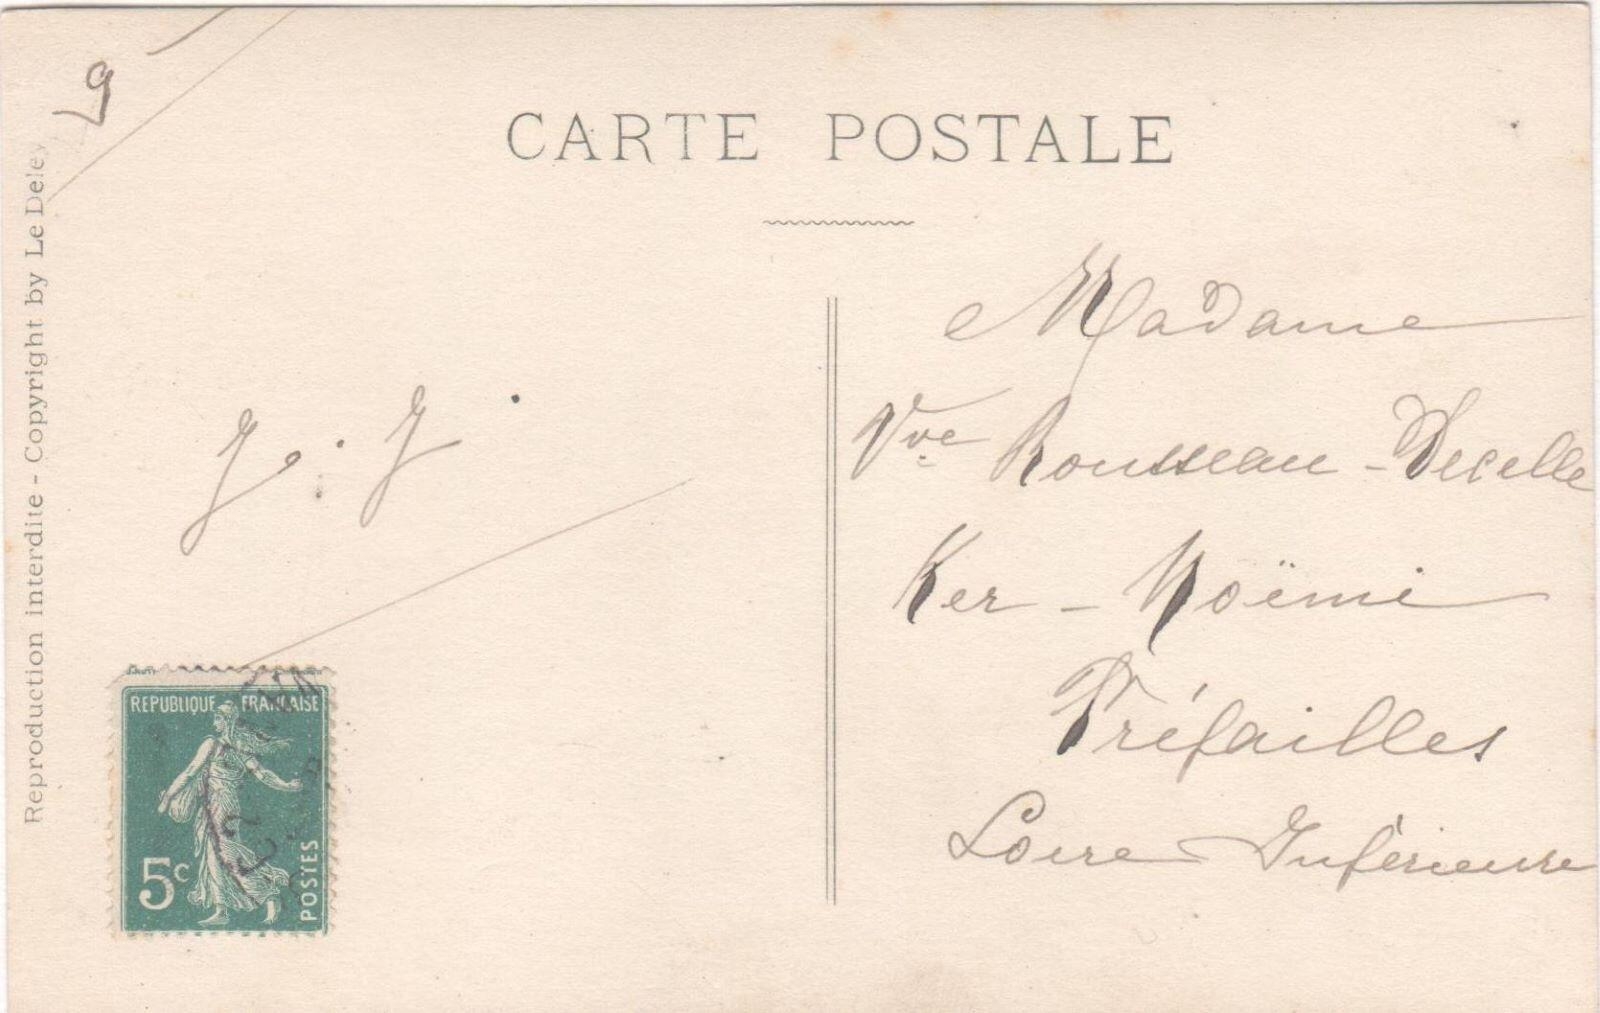 9
CARTE POSTALE
Reproduction interdite - Copyright by Le Deley
J. J.
Madame
Vve Rousseau-Decelle
Ker-Noëmi
Préfailles
Loire Inférieure
REPUBLIQUE FRANÇAISE
5c
POSTES